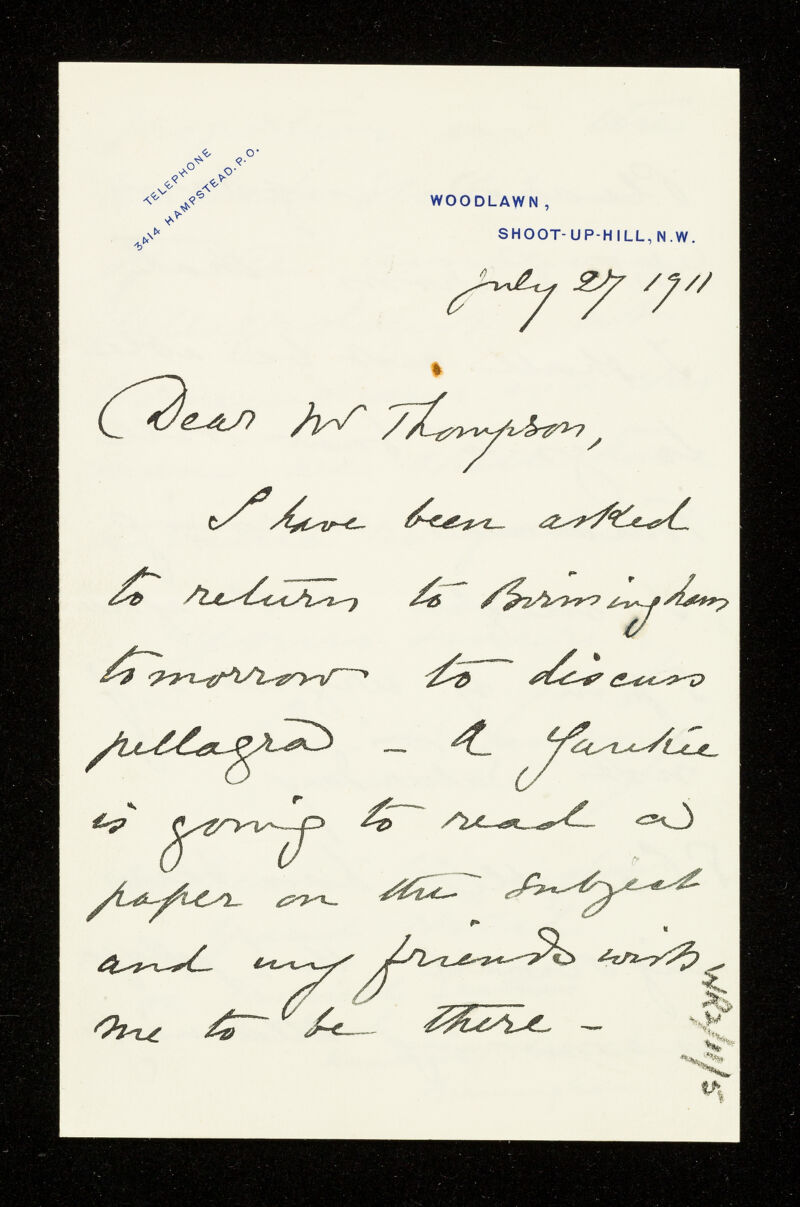 TELEPHONE
3414 HAMPSTEAD. P.O.
WOODLAWN,
SHOOT-UP-HILL, N.W.
July 27 1911
Dear Mr Thompson,
I have been asked
to return to Birmingham
tomorrow to discuss
pellagra – A Yankee
is going to read a
paper on the subject
and my friends wish
me to be there –